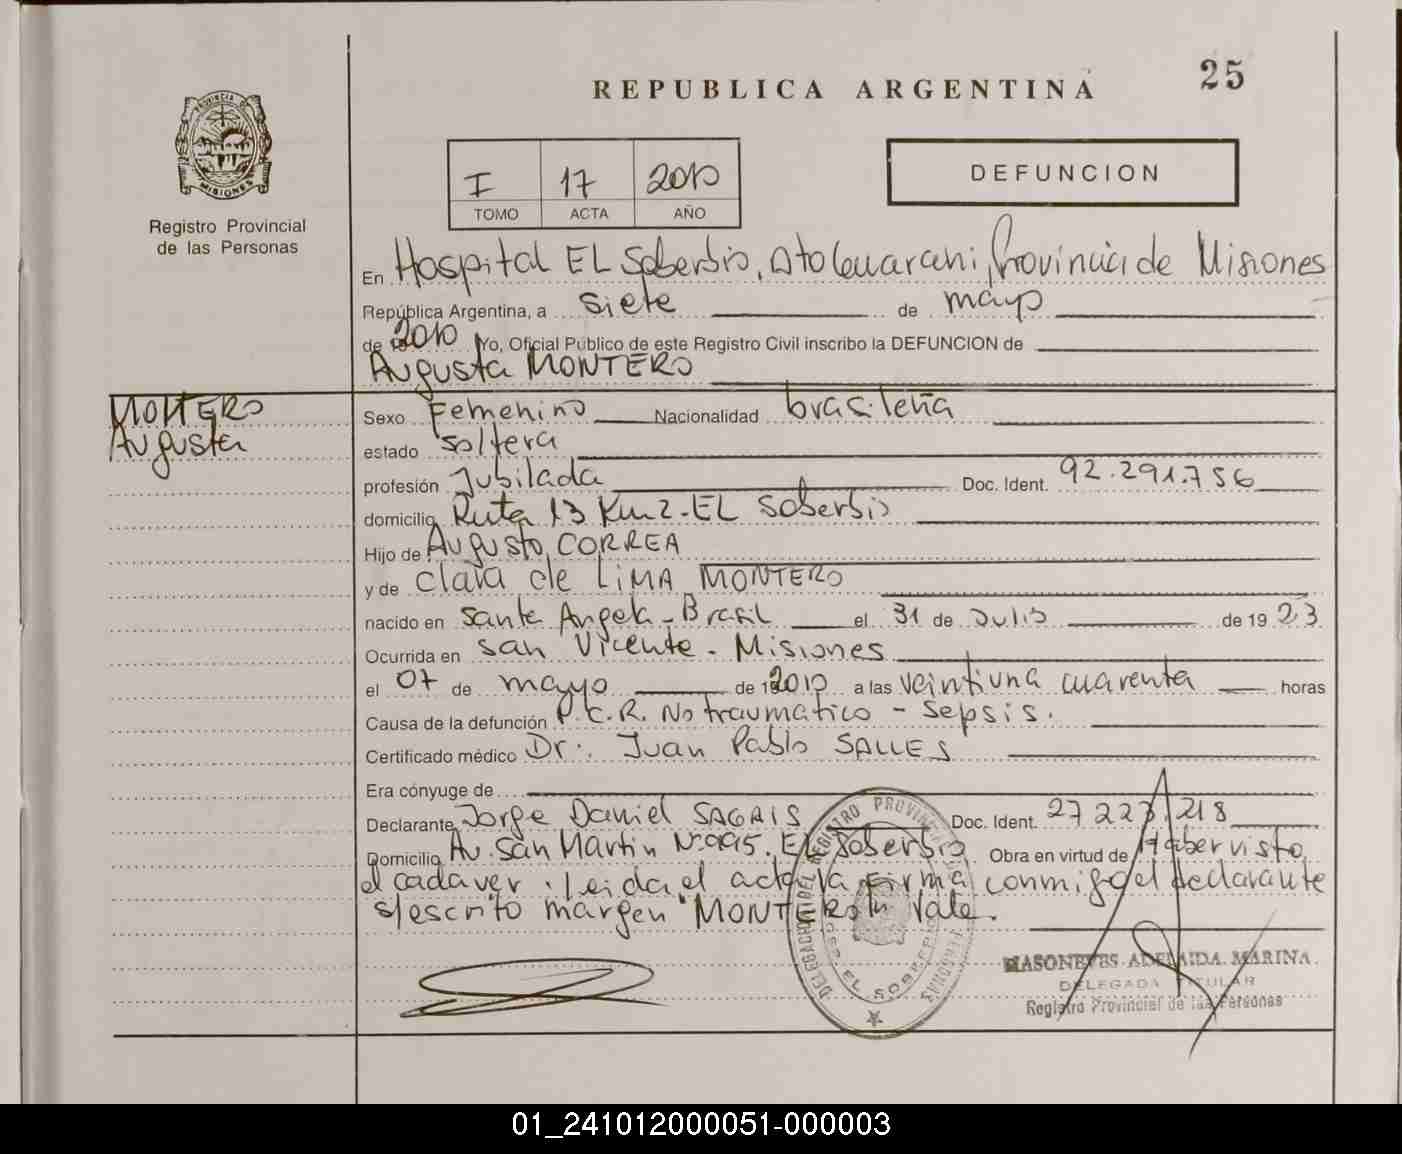 REPUBLICA ARGENTINA
25
PROVINCIA DE
MISIONES
Registro Provincial
de las Personas
I 17 2010
TOMO ACTA AÑO
DEFUNCION
En Hospital EL Soberbio, Dto Guarani, Provincia de Misiones
República Argentina, a siete de mayo
de 2010 Yo, Oficial Público de este Registro Civil inscribo la DEFUNCION de
Augusta MONTERO
MONTERO
Augusta
Sexo Femenino Nacionalidad brasileña
estado soltera
profesión Jubilada Doc. Ident. 92.291.756
domicilio Ruta 13 Km 2 - EL Soberbio
Hijo de Augusto CORREA
y de Clara de LIMA MONTERO
nacido en Santa Angela - Brasil el 31 de Julio de 1923
Ocurrida en San Vicente - Misiones
el 07 de mayo de 2010 a las veintiuna cuarenta horas
Causa de la defunción P.C.R. No traumatico - Sepsis.
Certificado médico Dr: Juan Pablo SALLES
Era cónyuge de
Declarante Jorge Daniel SAGAIS Doc. Ident. 27 223.218
Domicilio Av. San Martin Nº 995. EL Soberbio Obra en virtud de Haber visto
el cadaver. Leida el acta la firma conmigo el declarante
s/escrito margen "MONTERO" Vale.
DELEGACION DEL REGISTRO PROVINCIAL DE LAS PERSONAS
EL SOBERBIO
MASONEVES ADELAIDA MARINA
DELEGADA TITULAR
Registro Provincial de las Personas
01_241012000051-000003